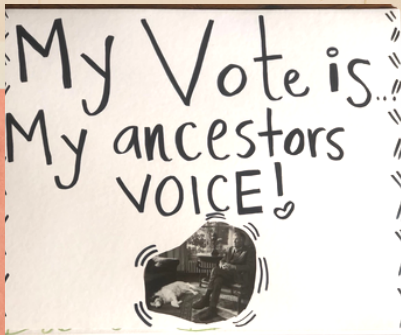 My Vote is...
My ancestors
VOICE!